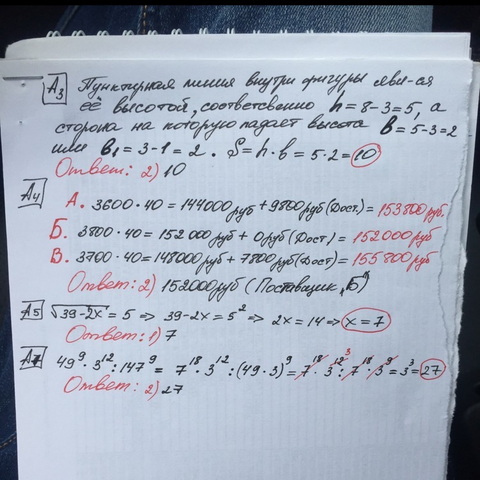 А3 Пунктирная линия внутри фигуры явл-ая
её высотой, соответсвенно h = 8-3=5, а
сторона на которую падает высота b = 5-3=2
или b₁ = 3-1 = 2. S=h·b = 5·2=10
Ответ: 2) 10
А4 А. 3600·40 = 144000руб + 9800руб (Дост.) = 153800руб.
Б. 3800·40 = 152000руб + 0руб (Дост) = 152000руб
В. 3700·40 = 148000руб + 7800руб (Дост) = 155800руб
Ответ: 2) 152000руб (Поставщик „Б"
А5 √39-2x = 5 ⇒ 39-2x = 5² ⇒ 2x = 14 ⇒ x = 7
Ответ: 1) 7
А7 49⁹·3¹²:147⁹ = 7¹⁸·3¹²:(49·3)⁹ = 7¹⁸·3¹² ³:7¹⁸·3⁹ = 3³ = 27
Ответ: 2) 27